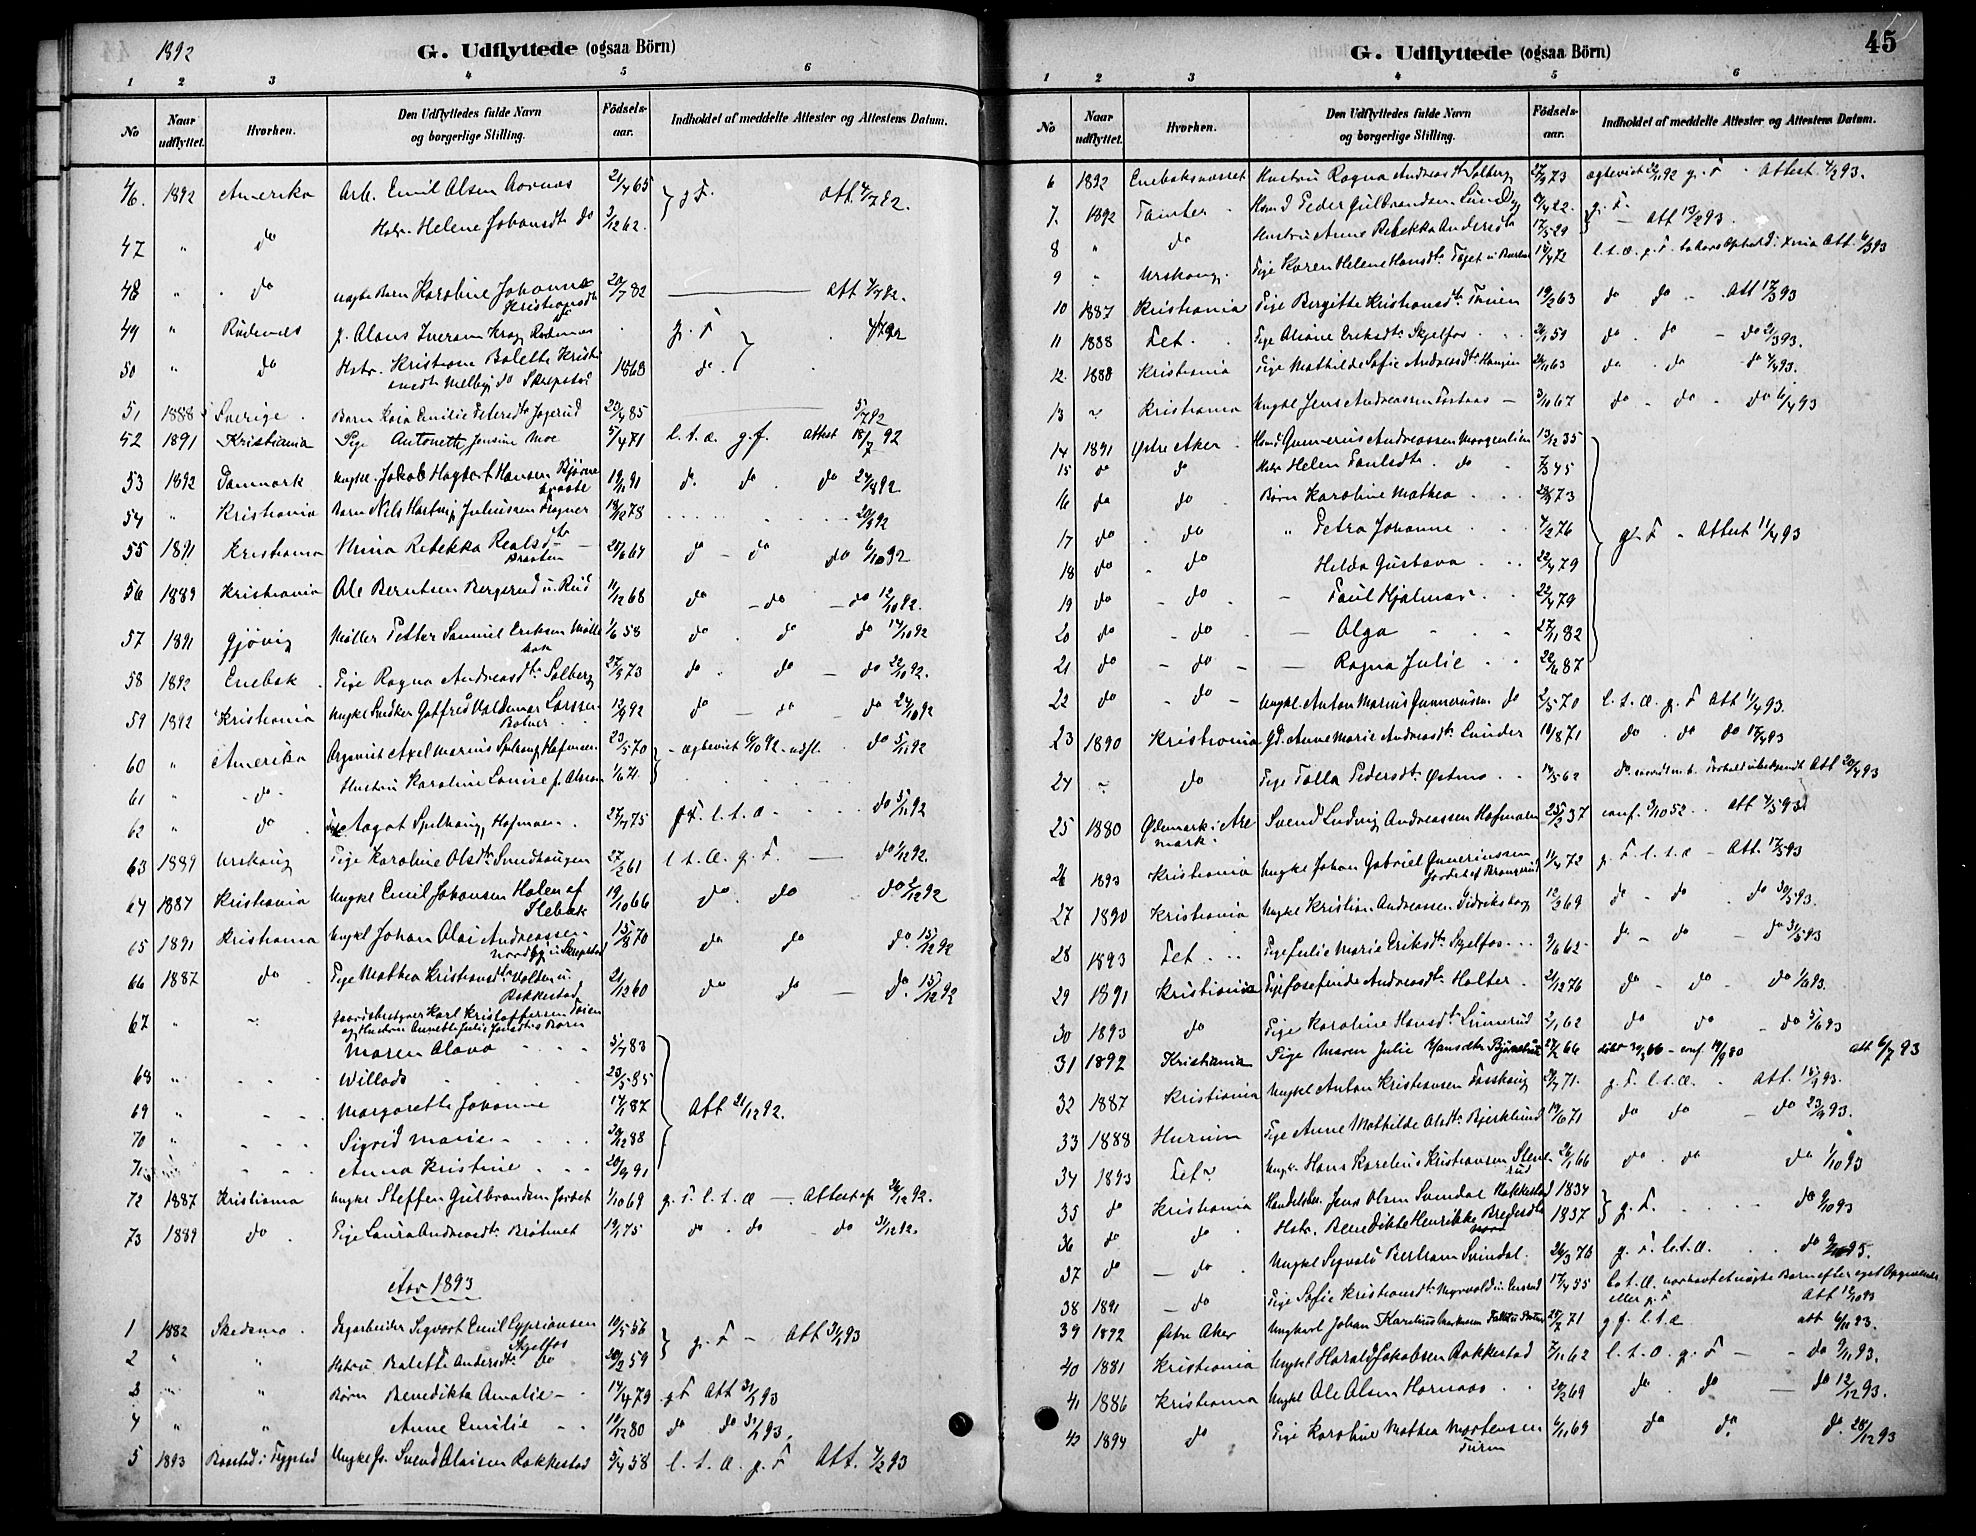 1892
G. Udflyttede (ogsaa Börn)
1 2 3 4 5 6
No Naar udflyttet. Hvorhen. Den Udflyttedes fulde Navn og borgerlige Stilling. Födsels-aar. Indholdet af meddelte Attester og Attestens Datum.
46. 1892 Amerika Arb. Emil Olsen Aornæs 21/4 65 g F. Att. 4/7 92.
47 " do Hstr. Helene Johansdtr do 3/12 62.
48 " do uægte Barn Karoline Johanne 20/7 82 Att 4/7 92.
Kristiansdtr
49 " Rødenæs g F 4/7 92
50 " do Hstr. Kristiane Bolette Krist- 1863 do.
51 1888 Sverige. Barn Kaia Emilie Petersdtr Jøgerud 23/4 85 5/7 92
52 1891 Kristiania Pige Antonette Jensine Moe 5/4 71 l. t. a. g. f. attest 18/7 92
53 1892 Danmark Ungkl. Jakob Hagbart Hansen Bjørne- 19/11 91 do. do. do 24/8 92
54 " Kristiania Barn Nels Hartvig Juliussen Fragner 18/12 78 20/9 92
55 1891 Kristiania Mina Rebekka Realsdtr 28/6 67 do - do do 6/10 92
Braaten
56 1889 Kristiania Ole Berntsen Bergerud u. Rud 11/12 68 do - do - do 12/10 92.
57 1891 Gjøvig Møller Petter Samuel Eriksen Mølle 1/6 58 do. do do 14/10 92
58 1892 Enebak Pige Ragna Andreasdtr Solberg 27/9 73 do. do - do 22/10 92.
59 1892 Kristiania Ungkl Snedker Gotfred Valdemar Larssen 12/9 92 do - do - do 24/10 92
Botner
60 " Amerika Axel Marius Spetaug Hofmoen 23/5 70 - ægteviet 6/10 92 - udfl. do 5/11 92
61 " do Hustru Karoline Louise f. Olsen 1/6 71
62 " do Pige Aagot Spetaug Hofmoen. 27/7 75 g F. l. t. a. do 5/11 92
63 1889 Urskoug Pige Karoline Olsdtr Svendhaugen 27/2 61 l. t. a. g. F. - do 1/12 92.
64 1887 Kristiania Ungkl Emil Johansen Holen af 19/10 66 do. do do 2/12 92
Slebæk
65 1891 Kristiania Ungkl Johan Olai Andreassen 15/8 70 do do do. 15/12 92
Nordby u Skrepstad
66 1887 do Pige Mathea Kristiansdtr Volden u. 21/12 60 do do - do. 15/12 92
Rakkestad
67 " " Gaardbestyrer Karl Kristoffersen Toien
og Hustru Annette Julie Jonsdtrs Børn
Maren Olava 5/7 83
68 " Willads 23/5 85
69 " Margarethe Johanne 17/1 87 Att 21/12 92.
70 " Sigrid Marie 30/12 88
71 Anna Kristine 20/9 91
72 1887 Kristiania Ungkl Steffen Gulbrandsen Jordet 1/10 69 g. F. l. t. a - Attest af 28/12 92.
73 1889 do. Pige Laura Andreasdtr Bråtnet 19/1 75 do. do do 31/12 92.
Aar 1893
1 1882 Skedsmo. Dagarbeider Sigvart Emil Cyprianssen 10/5 56 g. F - Att 31/1 93
Skjelfos
2 " " Hstru Balette Andersdtr do 20/2 59
3 " " Børn Benedikta Amalie 14/4 79 g F Att 31/1 93
4 " " Anne Emilie 19/12 80 do do 31/1 93.
5 1893 Baastad i Trygstad Ungkl. Svend Olaisen Rakkestad 5/4 58 l. t. a. g. F Att. 7/2 93
45
G. Udflyttede (ogsaa Börn)
1 2 3 4 5 6
No Naar udflyttet. Hvorhen. Den Udflyttedes fulde Navn og borgerlige Stilling. Födsels-aar. Indholdet af meddelte Attester og Attestens Datum.
6 1892 Enebaknæsset Hustru Ragna Andreasdtr Solberg 27/9 73 ægteviet 29/12 92 g. F. Attest 7/2 93.
7. 1892 Tomter Hmd Peder Gulbrandsen Lundby 4/4 22. g. F.
8 " do Hustru Anne Rebekka Andersdtr 17/5 29 - Att 13/2 93.
9 " Urskoug. Pige Karen Helene Hansdtr Toget u Buer 14/4 72 l. t. a. g. F. Att. 6/3 93
10 1887 Kristiania Pige Bergitte Kristiansdtr Toien 19/2 63 do do Att 17/3 93
11 1888 Fet. Pige Oliane Eriksdtr Skjelfos 26/1 59 do. do - do 21/3 93.
12. 1888 Kristiania Pige Mathilde Sofie Andreasdtr Haugen 24/11 63 do. do do 4/4 93.
13 " Kristiania Ungkl Jens Andreassen Fosaas - 3/10 67 do - do - do 6/4 93
14 1891 Østre Aker. Hmd Gunnerius Andreassen Morgenlien 13/12 35
15 do do Hstr Helen Paulsdtr. do 7/3 45
16 do do Børn Karoline Mathea 28/9 73
17 do. do " Petra Johanne 4/2 76 g. F. Attest 11/4 93
18 do do Hilda Gustava 22/4 79
19 do - do. - Paul Hjalmar 22/4 79
20 do - do. - Olga 27/1 82
21 do - do - - Ragna Julie 22/6 87
22 do - do - Ungkl Anton Marius Gunneriussen do 2/5 70 l. t. a. g. F Att 11/4 93.
23 1890 Kristiania Pd. Anne Marie Andreasdtr Lunder 10/8 71 do. do do 17/4 93
24 " do Pige Talla Pedersdtr Østmo 14/5 62 Att 20/4 93
25 1880 Ødemark i Are- Svend Ludvig Andreassen Hofmoen 25/2 37 conf. 3/10 52. Att 4/5 93
mark.
26 1893 Kristiania Ungkl Johan Gabriel Gunneriussen 11/4 72 g. F. l. t. a - Att. 17/5 93
27 1890 Kristiania Ungkl Kristian Andreassen Didriksborg 12/2 69 do - do. do 30/5 93.
28 1893 Fet. Pige Julie Marie Eriksdtr Skjelfos 9/6 62 do - do - do 31/5 93
29 1891 Kristiania Pige Josefinde Andreasdtr Holter. 21/12 76 do - do. do 1/6 93.
30 1893 do Pige Karoline Hansdtr Linnerud 2/1 62 do do - do 5/6 93
31 1892 Kristiania Pige Maren Julie Hansdtr Bjørnstad 27/2 66 conf. 19/9 80 att 6/7 93
32 1887 Kristiania Ungkl Anton Kristiansen Fosshaug 29/7 71. g. F. l. t. a. Att. 15/9 93.
33 1888 Hurum Pige Anne Mathilde Olsdtr Bjerklund 19/6 71 do do - do 23/9 93.
34 1893 Fet Ungk. Hans Karelius Kristiansen Stene- 26/1 66 do. do do 1/10 93
rud
35 do Kristiania Handelsbr. Jens Olsen Svendal Rakkestad 1834 g. F. do 9/10 93
36 do do. Hstr. Benedikte Henrikke Bredesdtr 1837
37 do - do. Ungkl Sigvald Bertram Svindal. 26/3 76 g. F. l. t. a.
38 1891 - do Pige Sofie Kristiansdtr Myrvold u. Ensrud 17/4 55 l. t. a. Barn efter eget Opgivende
eller g. F Att 12/10 93
39 1892 Østre Aker Ungkarl Johan Karelius 28/7 71 g f. l. t. a att 6/11 93.
40 1881 Kristiania Ungkl Harald Jakobsen Rakkestad 7/11 62 l. t. a. g. F - - do 9/11 93.
41 1886 Kristiania Ungkl Ole Olsen Hornaas 20/2 69 do. do - do 12/12 93.
1894 do Pige Karoline Mathea Mortensen 6/11 69 do do. do. 28/12 93